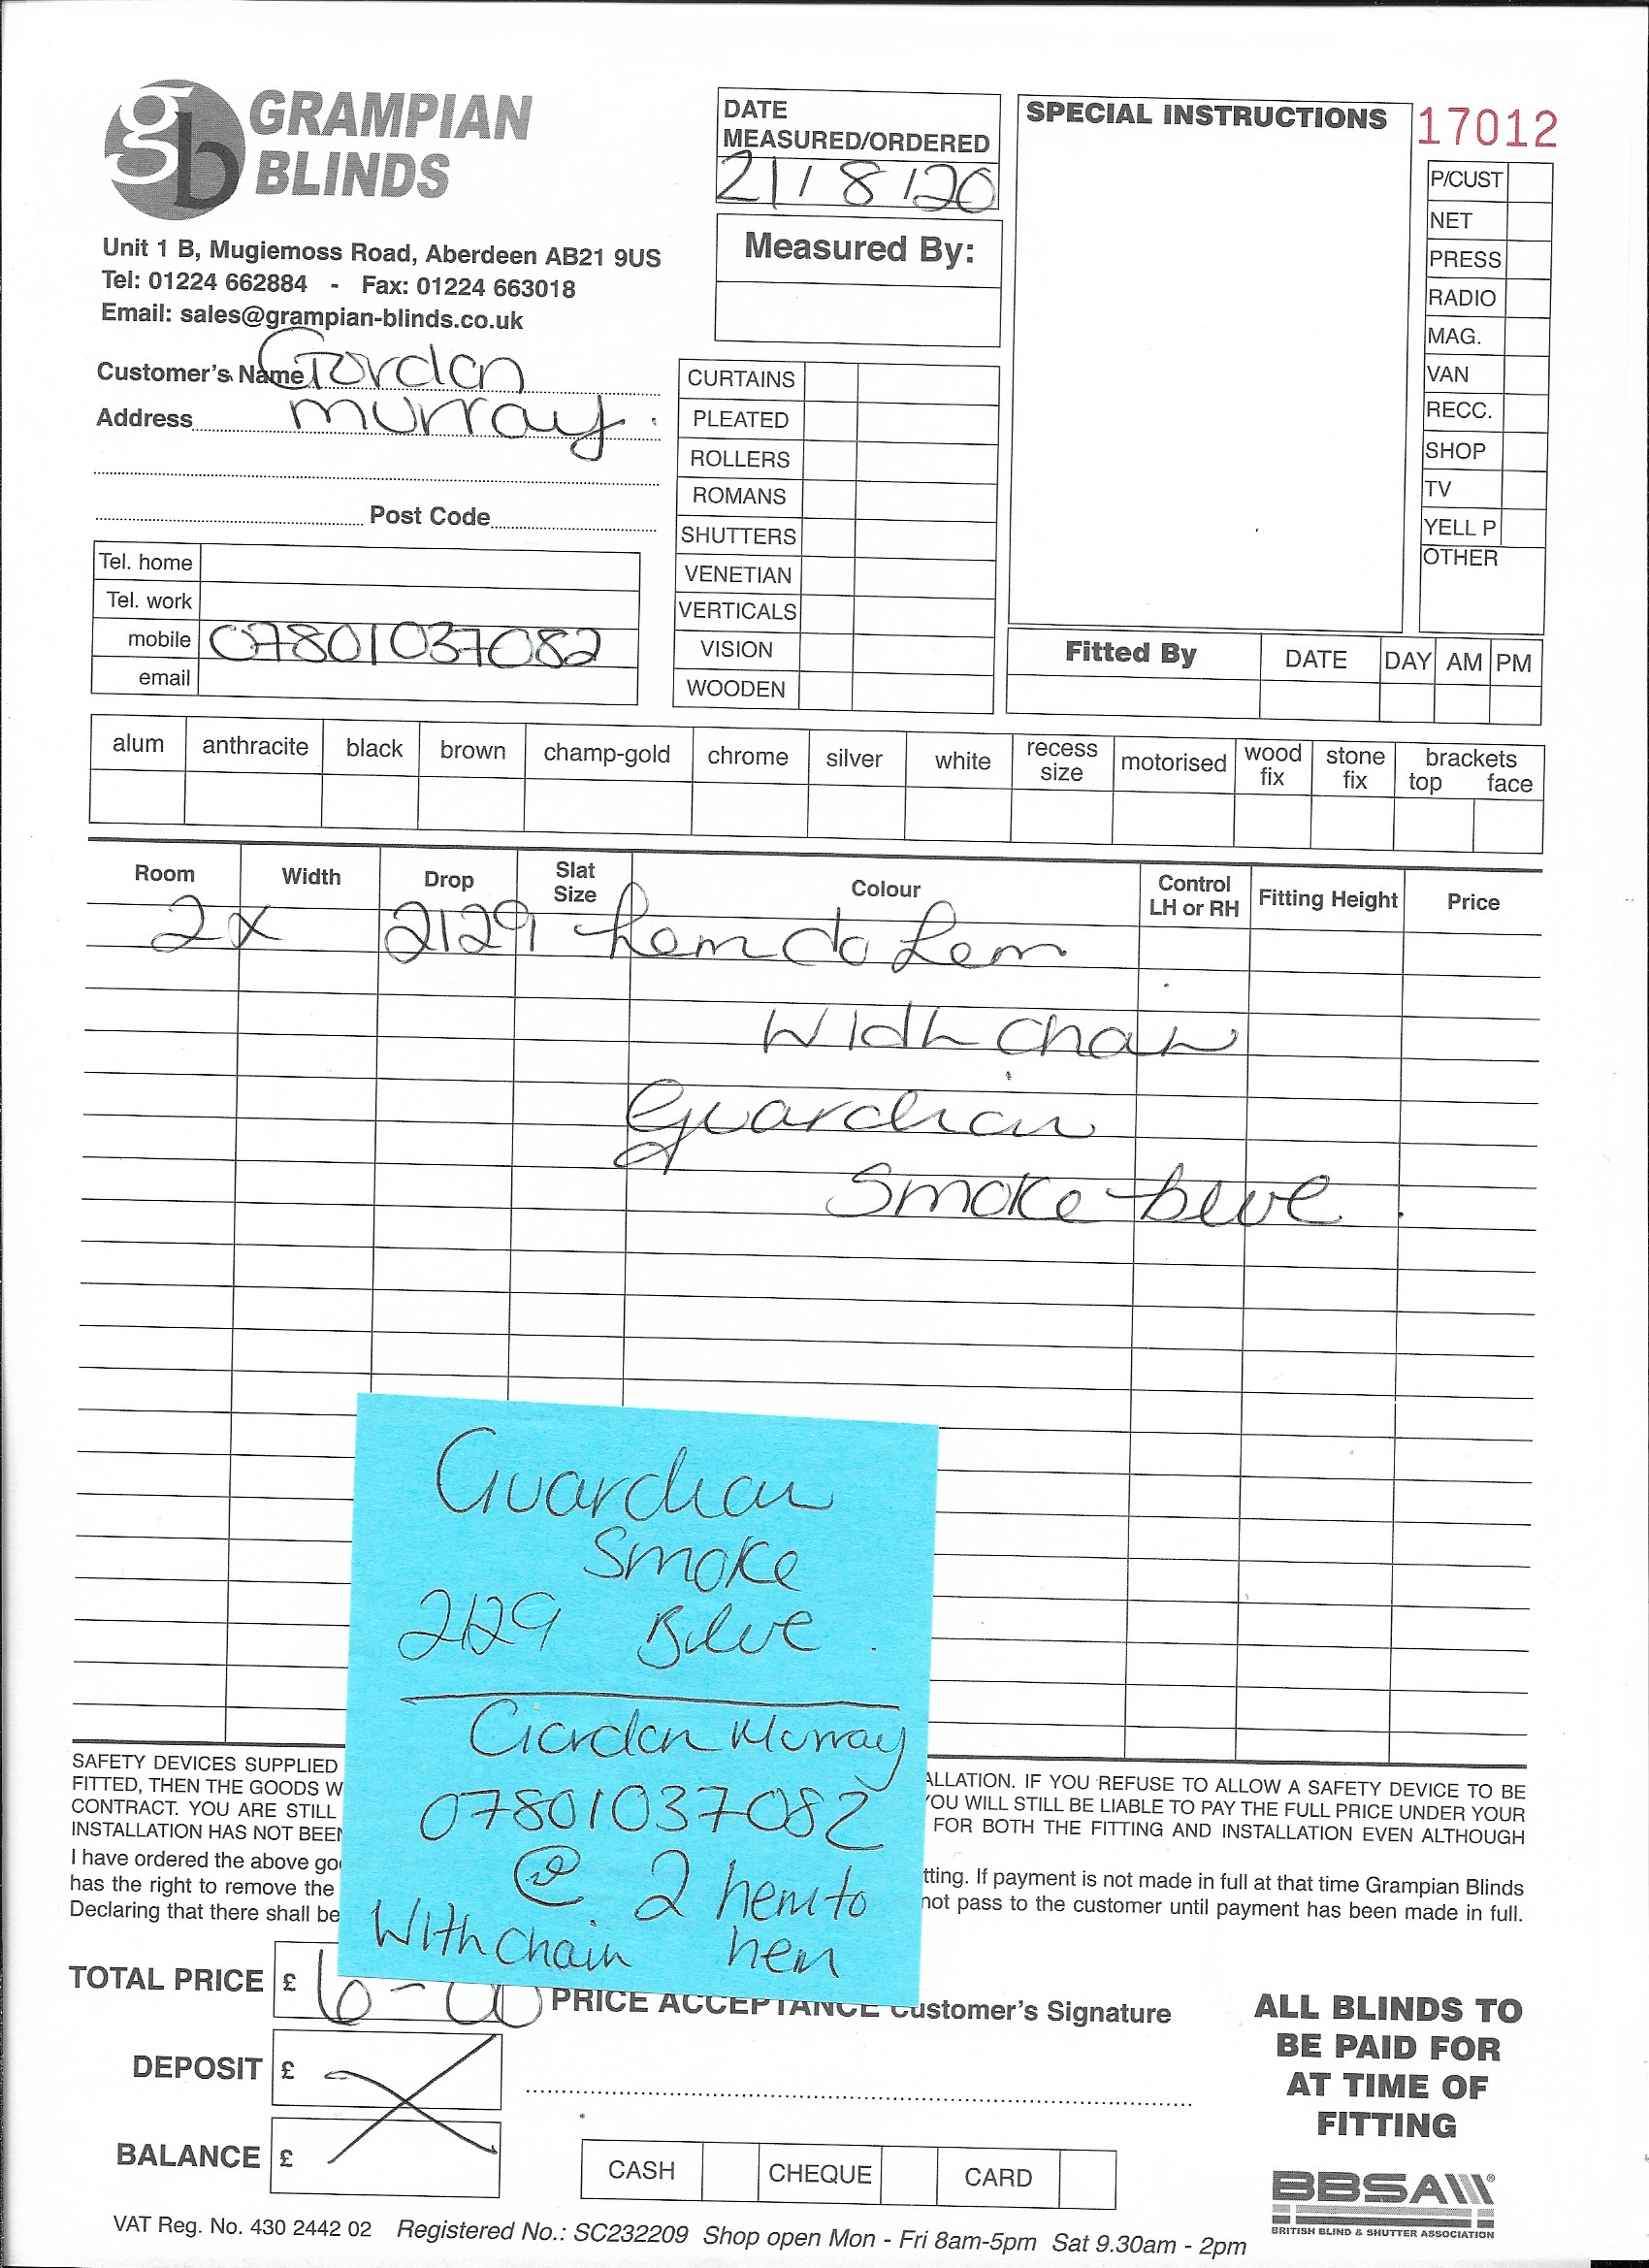 gb GRAMPIAN
BLINDS
Unit 1 B, Mugiemoss Road, Aberdeen AB21 9US
Tel: 01224 662884 - Fax: 01224 663018
Email: sales@grampian-blinds.co.uk
Customer's Name Gordon
Address murray
Post Code
Tel. home
Tel. work
mobile 07801037082
email
DATE
MEASURED/ORDERED
21/8/20
Measured By:
CURTAINS
PLEATED
ROLLERS
ROMANS
SHUTTERS
VENETIAN
VERTICALS
VISION
WOODEN
SPECIAL INSTRUCTIONS
17012
P/CUST
NET
PRESS
RADIO
MAG.
VAN
RECC.
SHOP
TV
YELL P
OTHER
Fitted By DATE DAY AM PM
alum anthracite black brown champ-gold chrome silver white recess size motorised wood fix stone fix brackets top face
Room Width Drop Slat Size Colour Control LH or RH Fitting Height Price
2x 2129 hem to hem
With chain
Guardian
Smoke-blue
Guardian
Smoke
2129 Blue
Gordon Murray
07801037082
@ 2 hem to
With chain hem
SAFETY DEVICES SUPPLIED ALLATION. IF YOU REFUSE TO ALLOW A SAFETY DEVICE TO BE
FITTED, THEN THE GOODS W YOU WILL STILL BE LIABLE TO PAY THE FULL PRICE UNDER YOUR
CONTRACT. YOU ARE STILL FOR BOTH THE FITTING AND INSTALLATION EVEN ALTHOUGH
INSTALLATION HAS NOT BEEN
I have ordered the above go tting. If payment is not made in full at that time Grampian Blinds
has the right to remove the not pass to the customer until payment has been made in full.
Declaring that there shall be
TOTAL PRICE £ 6-00
PRICE ACCEPTANCE Customer's Signature
DEPOSIT £
BALANCE £
CASH CHEQUE CARD
ALL BLINDS TO
BE PAID FOR
AT TIME OF
FITTING
BBSA
BRITISH BLIND & SHUTTER ASSOCIATION
VAT Reg. No. 430 2442 02 Registered No.: SC232209 Shop open Mon - Fri 8am-5pm Sat 9.30am - 2pm